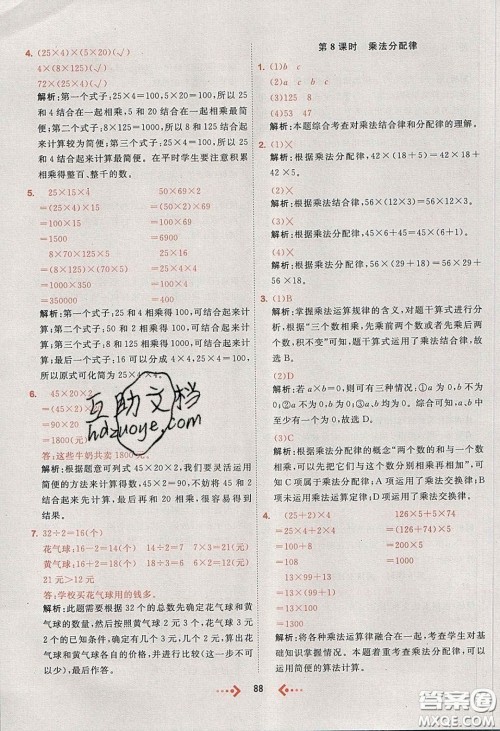 4. (25×4)×(5×20)(√)
4×(8×125)(√)
72×(25×4)(√)
解析:第一个式子:25×4=100,5×20=100,所以 25
和 4 结合在一起相乘,5 和 20 结合在一起相乘计算
最简便。第二个式子:8×125=1000,所以 8 和 125 结
合起来计算较为简便。第三个式子:25×4=100,所以
25 和 4 结合起来计算最简便。在平时学生要注意积累
相乘得整百、整千的数。
5. 25×15×4 50×69×2
=(25×4)×15 =50×2×69
=100×15 =100×69
=1500 =6900
8×70×125×5 25×16
=(8×125)×(70×5) =25×4×4
=1000×350 =100×4
=350000 =400
解析:第一题:25 和 4 相乘得 100,可结合起来计算。
第二题:50 和 2 相乘得 100,可结合起来计算。第三
题:8 和 125 相乘得 1000,可结合起来计算,剩下两个
数相乘。最后一题:16 可以分解成 4×4,25×4=100,
所以原式可化简为 25×4×4。
6. 45×20×2
=(45×2)×20
=90×20
=1800(元)
答:这些牛奶共卖 1800 元。
解析:根据题意可列式 45×20×2,我们要灵活运用
简便的方法来计算得数。因为 45×2=90,可以把这
两个数结合起来先计算,最后再乘 20,可以较快得出
结果。
7. 32÷2=16(个)
花气球:16-2=14(个) 14÷2=7 7×3=21(元)
黄气球:16+2=18(个) 18÷3=6 6×2=12(元)
21 元>12 元
答:学校买花气球用的钱多。
解析:此题需要根据 32 个的总数先确定花气球和黄
气球的数量,又因为花气球 2 个 3 元,黄气球 3 个 2
元,2 个的和 3 个的单价不确定,那么,算出花气球和
黄气球各自的价格,并进行比较即可(方法不唯一,也
可以用花气球的钱数减去黄气球的钱数,看够不够
减)。
第 8 课时 乘法分配律
1. (1)b c
(2)a c b c
(3)125 8
(4)53 47
解析:本题综合考查对乘法结合律和分配律的理解。
2. (1)×
解析:根据乘法分配律,42×(18+5)=42×18+
42×5。
(2)×
解析:根据乘法结合律,56×(12×3)=56×12×3。
(3)×
解析:根据乘法分配律,6×45+45=45×(6+1)。
(4)×
解析:根据乘法分配律,56×(29+13)=56×29+
56×13。
3. (1)B
解析:掌握乘法运算规律的含义,对题干算式进行分
析。根据“三个数相乘,先乘前两个数或者先乘后两个
数,积不变”可知,题干算式运用了乘法结合律。故
选 B。
(2)D
解析:若 a×b=0,则有三种情况:①a 为 0,b 不为
0;②b 为 0,a 不为 0;③a,b 都为 0。三种情况结合,至
少有一个为 0。
(3)C
解析:根据乘法分配律的概念“两个数的和与一个数
相乘,可以先把它们与这个数分别相乘,再相加”,可
知 C 项属于乘法分配律。A 项运用了乘法交换律;B
项未运用乘法运算律;D 项运用了乘法交换律。
4. (25+2)×4 126×5+74×5
=25×4+2×4 =(126+74)×5
=100+8 =200×5
=108 =1000
13×99+13
=13×(99+1)
=13×100
=1300
解析:将各种乘法运算律融合在一起,考查学生对基
础知识掌握情况。本题着重考查乘法分配律,可以运
用最简便的算法计算。
互助文档
hdzuoye.com
88
答案圈
MXQE.COM